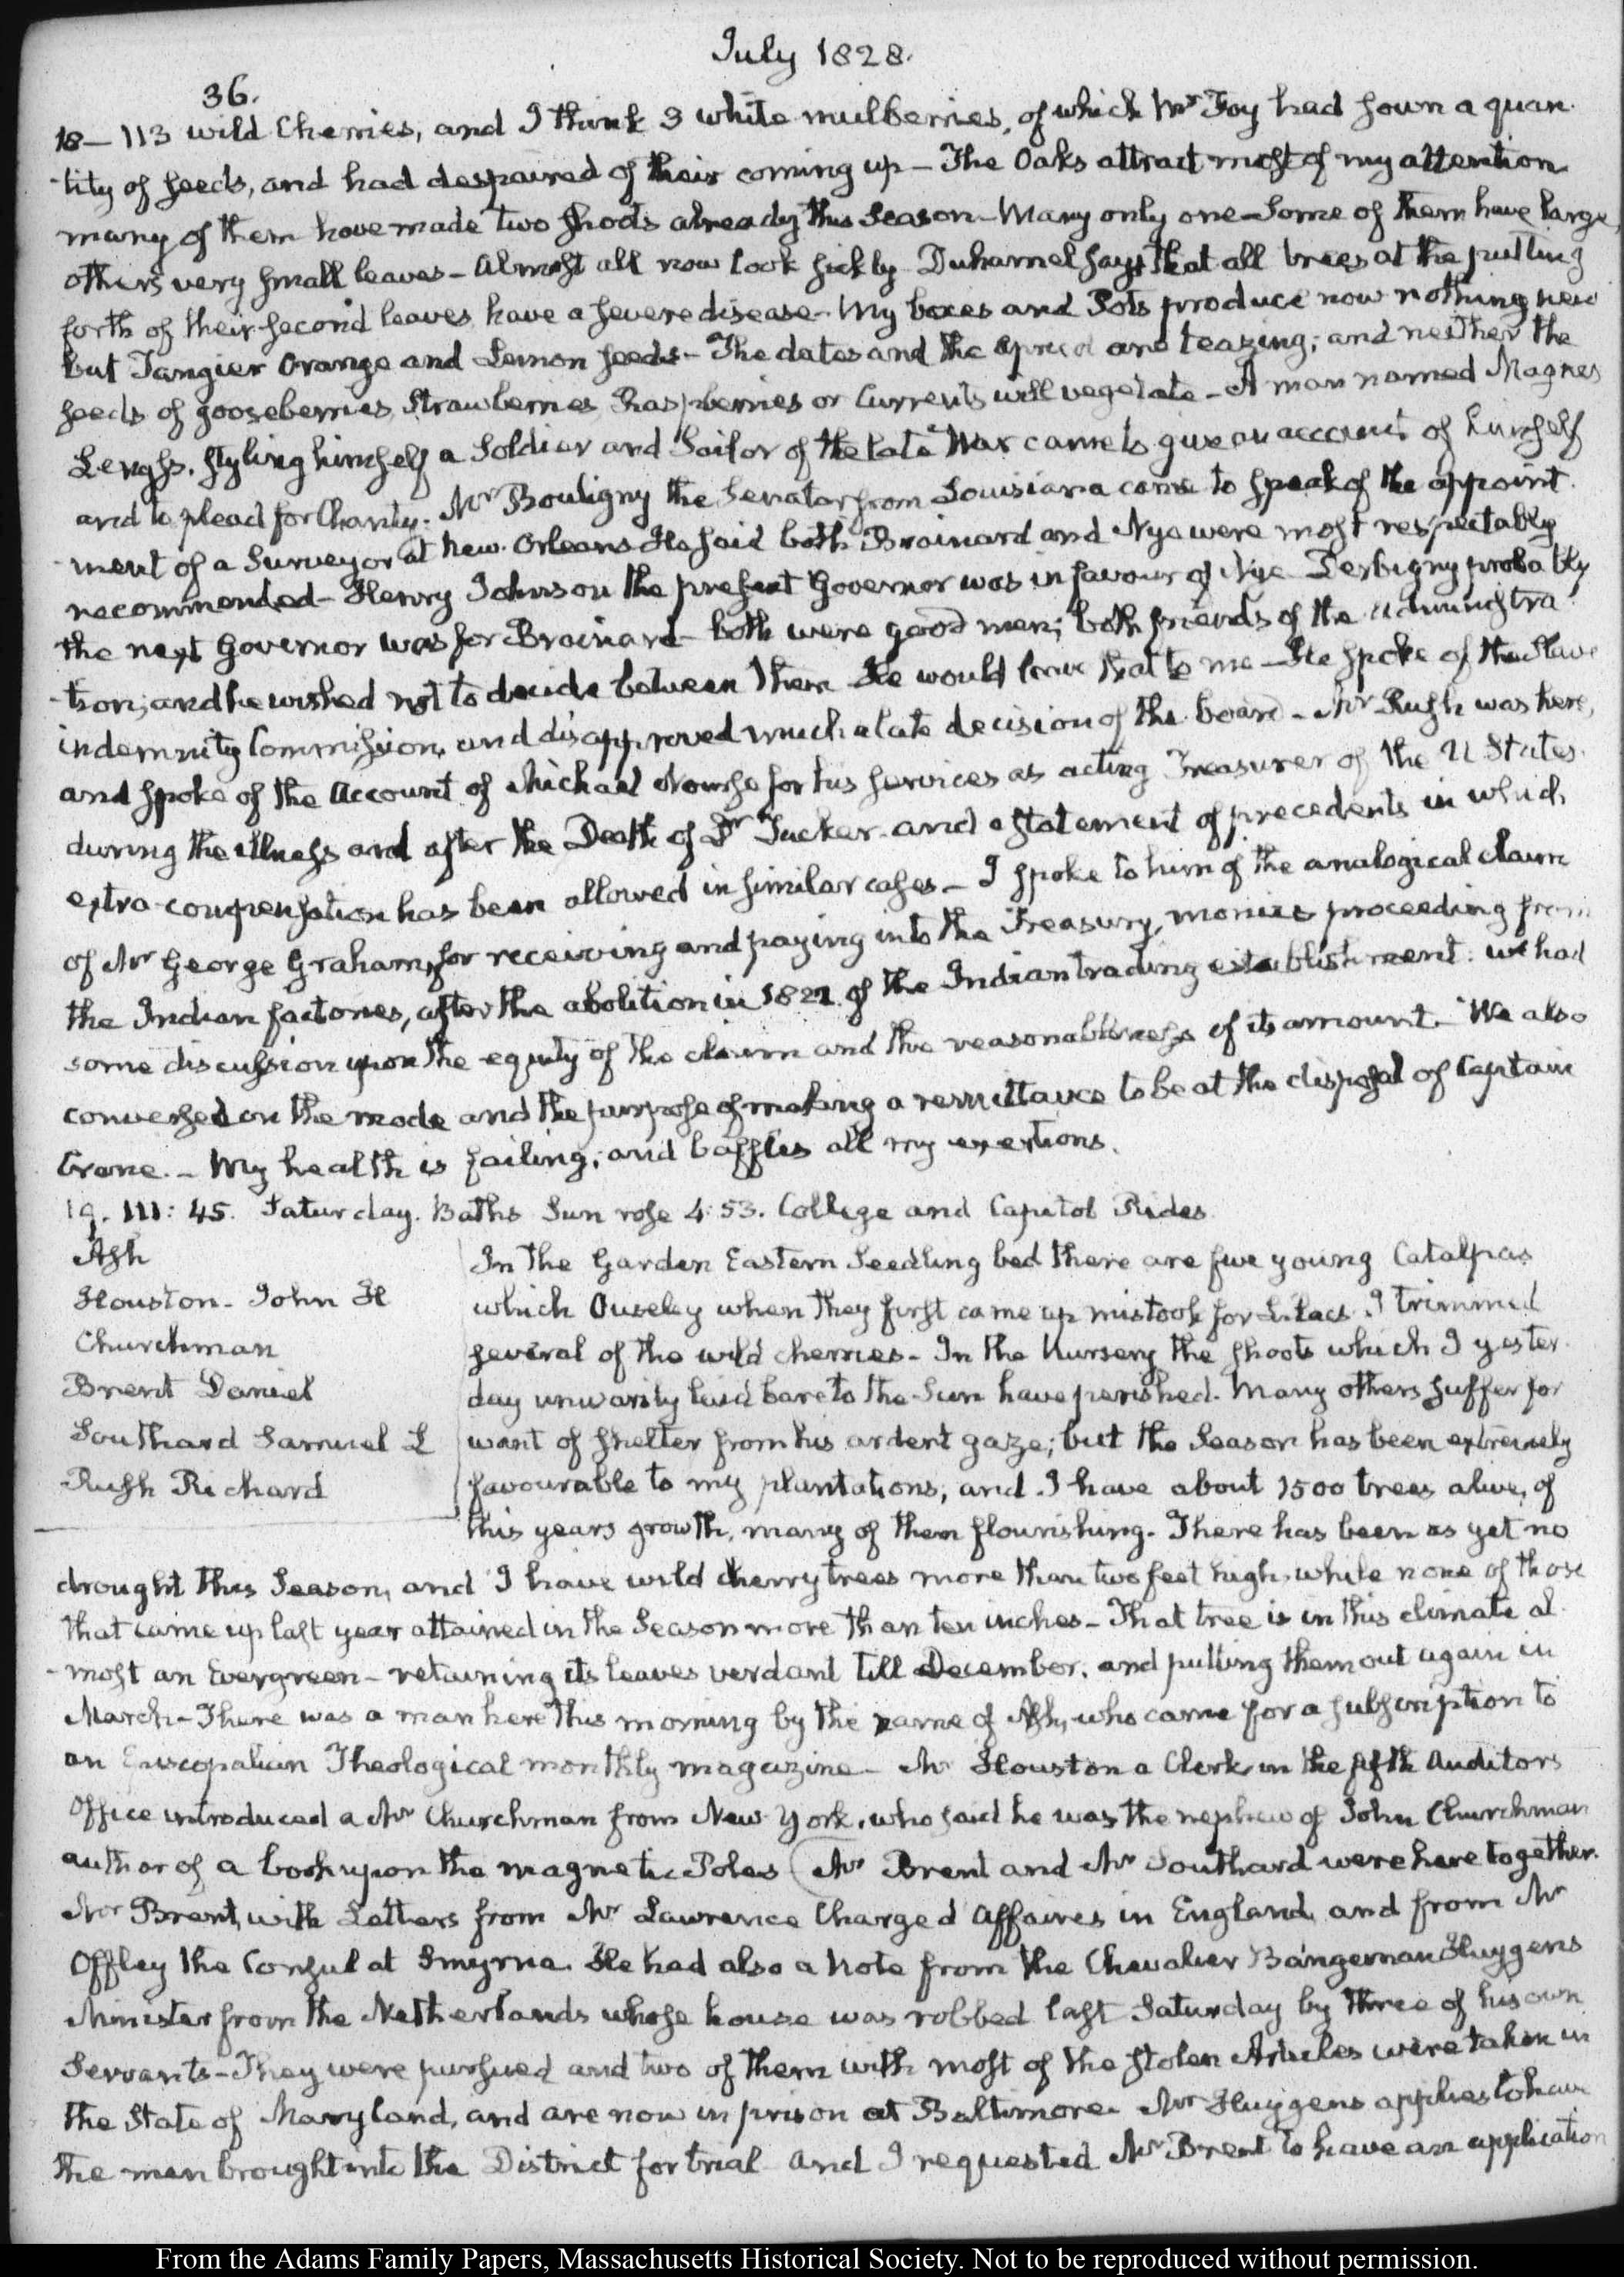 July 1828.
36.
18 — 113 wild Cherries, and I think 3 white mulberries, of which Mr Foy had sown a quan
-tity of seeds, and had despaired of their coming up — The Oaks attract most of my attention
many of them have made two shoots already this Season — Many only one — Some of them have large,
others very small leaves — Almost all now look sickly Duhamel says that all trees at the putting
forth of their second leaves have a severe disease — My boxes and Pots produce now nothing new
but Tangier Orange and Lemon seeds — The dates and the are teazing; and neither the
seeds of gooseberries Strawberries Raspberries or Currents will vegetate — A man named Magnes
styling himself a Soldier and Sailor of the late War came to give an account of himself
and to plead for Charity. Mr Bouligny the Senator from Louisiana came to speak of the appoint
-ment of a Surveyor at New-Orleans He said both Brainard and Nye were most respectably
recommended — Henry Johnson the present Governor was in favour of Nye Derbigny probably
the next Governor was for Brainard — both were good men; both friends of the administra
-tion; and he wished not to decide between them He would leave that to me — He spoke of the Slave
indemnity Commission, and disapproved much a late decision of the board — Mr Rush was here,
and spoke of the Account of Michael Nourse for his services as acting Treasurer of the U States
during the illness and after the Death of Dr Tucker and a statement of precedents in which
extra-compensation has been allowed in similar cases — I spoke to him of the analogical claim
of Mr George Graham, for receiving and paying into the Treasury, monies proceeding from
the Indian factories, after the abolition in 1822 of the Indian trading establishment. we had
some discussion upon the equity of the claim and the reasonableness of its amount. We also
conversed on the mode and the purpose of making a remittance to be at the disposal of Captain
Crane. — My health is failing; and baffles all my exertions.
19. III: 45. Saturday. Baths Sun rose 4:53. College and Capitol Rides
Ash
Houston — John H
Churchman
Brent Daniel
Southard Samuel L
Rush Richard
In the Garden Eastern Seedling bed there are five young Catalpas
which Ouseley when they first came up mistook for Lilacs. I trimmed
several of the wild cherries — In the Nursery the shoots which I yester
day unwarily laid bare to the Sun have perished. Many others suffer for
want of shelter from his ardent gaze; but the Season has been extremely
favourable to my plantations, and I have about 1500 trees alive, of
this years growth, many of them flourishing. There has been as yet no
drought this Season, and I have wild cherry trees more than two feet high, while none of those
that came up last year attained in the Season more than ten inches — That tree is in this climate al
-most an Evergreen — retaining its leaves verdant till December, and putting them out again in
March — There was a man here this morning by the name of Ash, who came for a subscription to
an Episcopalian Theological monthly magazine — Mr Houston a Clerk in the fifth Auditors
Office introduced a Mr Churchman from New-York, who said he was the nephew of John Churchman
author of a book upon the magnetic Poles (Mr Brent and Mr Southard were here together.
Mr Brent, with Letters from Mr Lawrence Charge d'Affaires in England, and from Mr
Offley the Consul at Smyrna. He had also a Note from the Chevalier Bangeman Huygens
Minister from the Netherlands whose house was robbed last Saturday by three of his own
Servants — They were pursued and two of them with most of the stolen Articles were taken in
the State of Maryland, and are now in prison at Baltimore. Mr Huygens applies to have
the men brought into the District for trial and I requested Mr Brent to have an application
From the Adams Family Papers, Massachusetts Historical Society. Not to be reproduced without permission.